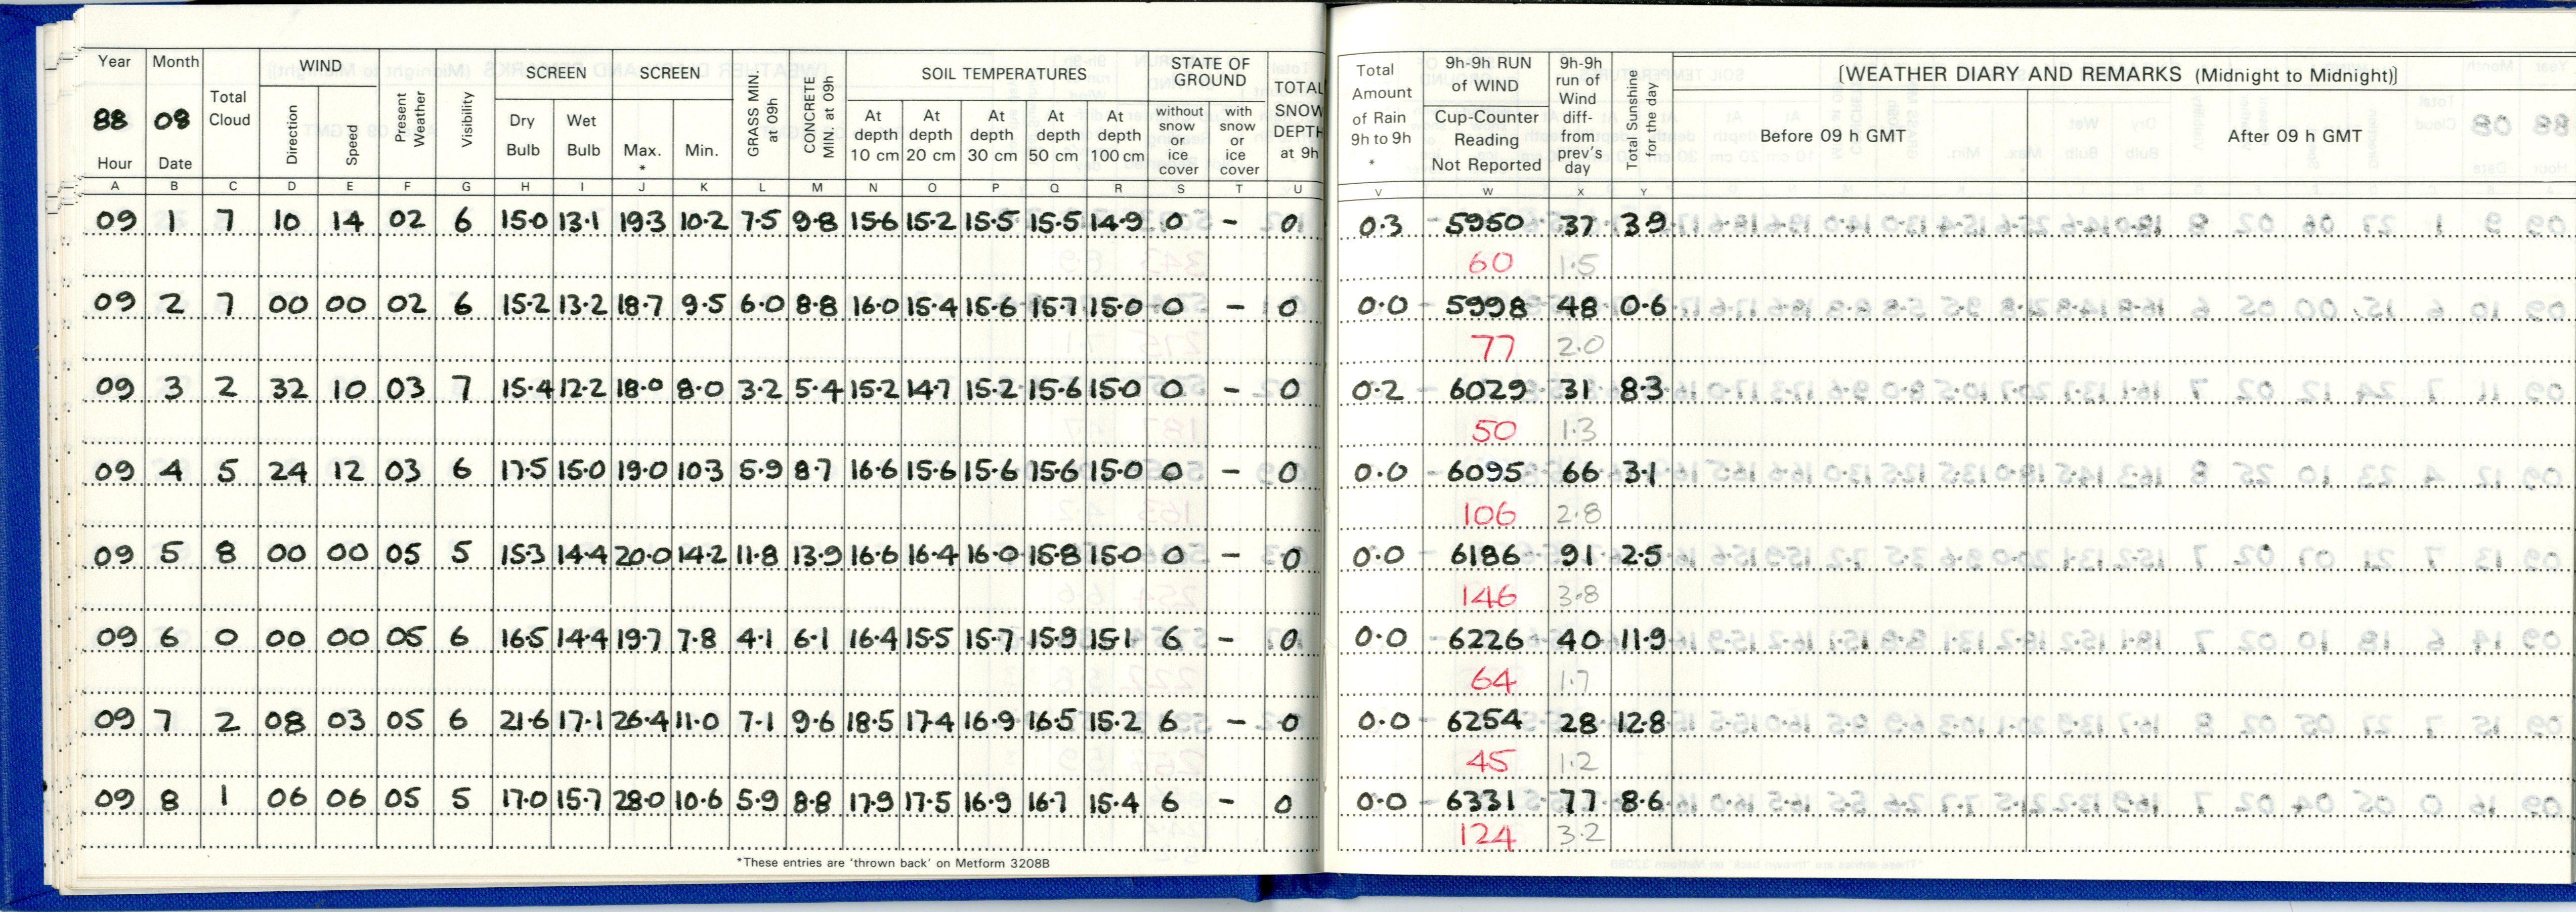 Year Month Total Cloud WIND Present Weather Visibility SCREEN SCREEN GRASS MIN. at 09h CONCRETE MIN. at 09h SOIL TEMPERATURES STATE OF GROUND TOTAL SNOW DEPTH at 9h Total Amount of Rain 9h to 9h * 9h-9h RUN of WIND 9h-9h run of Wind diff- from prev's day Total Sunshine for the day [WEATHER DIARY AND REMARKS (Midnight to Midnight)]
88 08 Direction Speed Dry Bulb Wet Bulb Max. * Min. At depth 10 cm At depth 20 cm At depth 30 cm At depth 50 cm At depth 100 cm without snow or ice cover with snow or ice cover Cup-Counter Reading Not Reported Before 09 h GMT After 09 h GMT
Hour Date
A B C D E F G H I J K L M N O P Q R S T U V W X Y
09 1 7 10 14 02 6 15.0 13.1 19.3 10.2 7.5 9.8 15.6 15.2 15.5 15.5 14.9 0 - 0 0.3 5950 37 3.9
60 1.5
09 2 7 00 00 02 6 15.2 13.2 18.7 9.5 6.0 8.8 16.0 15.4 15.6 15.7 15.0 0 - 0 0.0 5998 48 0.6
77 2.0
09 3 2 32 10 03 7 15.4 12.2 18.0 8.0 3.2 5.4 15.2 14.7 15.2 15.6 15.0 0 - 0 0.2 6029 31 8.3
50 1.3
09 4 5 24 12 03 6 17.5 15.0 19.0 10.3 5.9 8.7 16.6 15.6 15.6 15.6 15.0 0 - 0 0.0 6095 66 3.1
106 2.8
09 5 8 00 00 05 5 15.3 14.4 20.0 14.2 11.8 13.9 16.6 16.4 16.0 15.8 15.0 0 - 0 0.0 6186 91 2.5
146 3.8
09 6 0 00 00 05 6 16.5 14.4 19.7 7.8 4.1 6.1 16.4 15.5 15.7 15.9 15.1 6 - 0 0.0 6226 40 11.9
64 1.7
09 7 2 08 03 05 6 21.6 17.1 26.4 11.0 7.1 9.6 18.5 17.4 16.9 16.5 15.2 6 - 0 0.0 6254 28 12.8
45 1.2
09 8 1 06 06 05 5 17.0 15.7 28.0 10.6 5.9 8.8 17.9 17.5 16.9 16.7 15.4 6 - 0 0.0 6331 77 8.6
124 3.2
*These entries are 'thrown back' on Metform 3208B